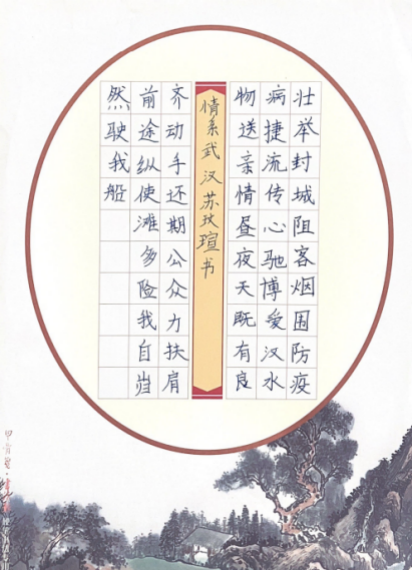 壮举封城阻客烟围防疫
病捷流传心驰博爱汉水
物送亲情昼夜天既有良
情系武汉苏玟瑄书
齐动手还期公众力扶肩
前途纵使滩多险我自当
然驶我船